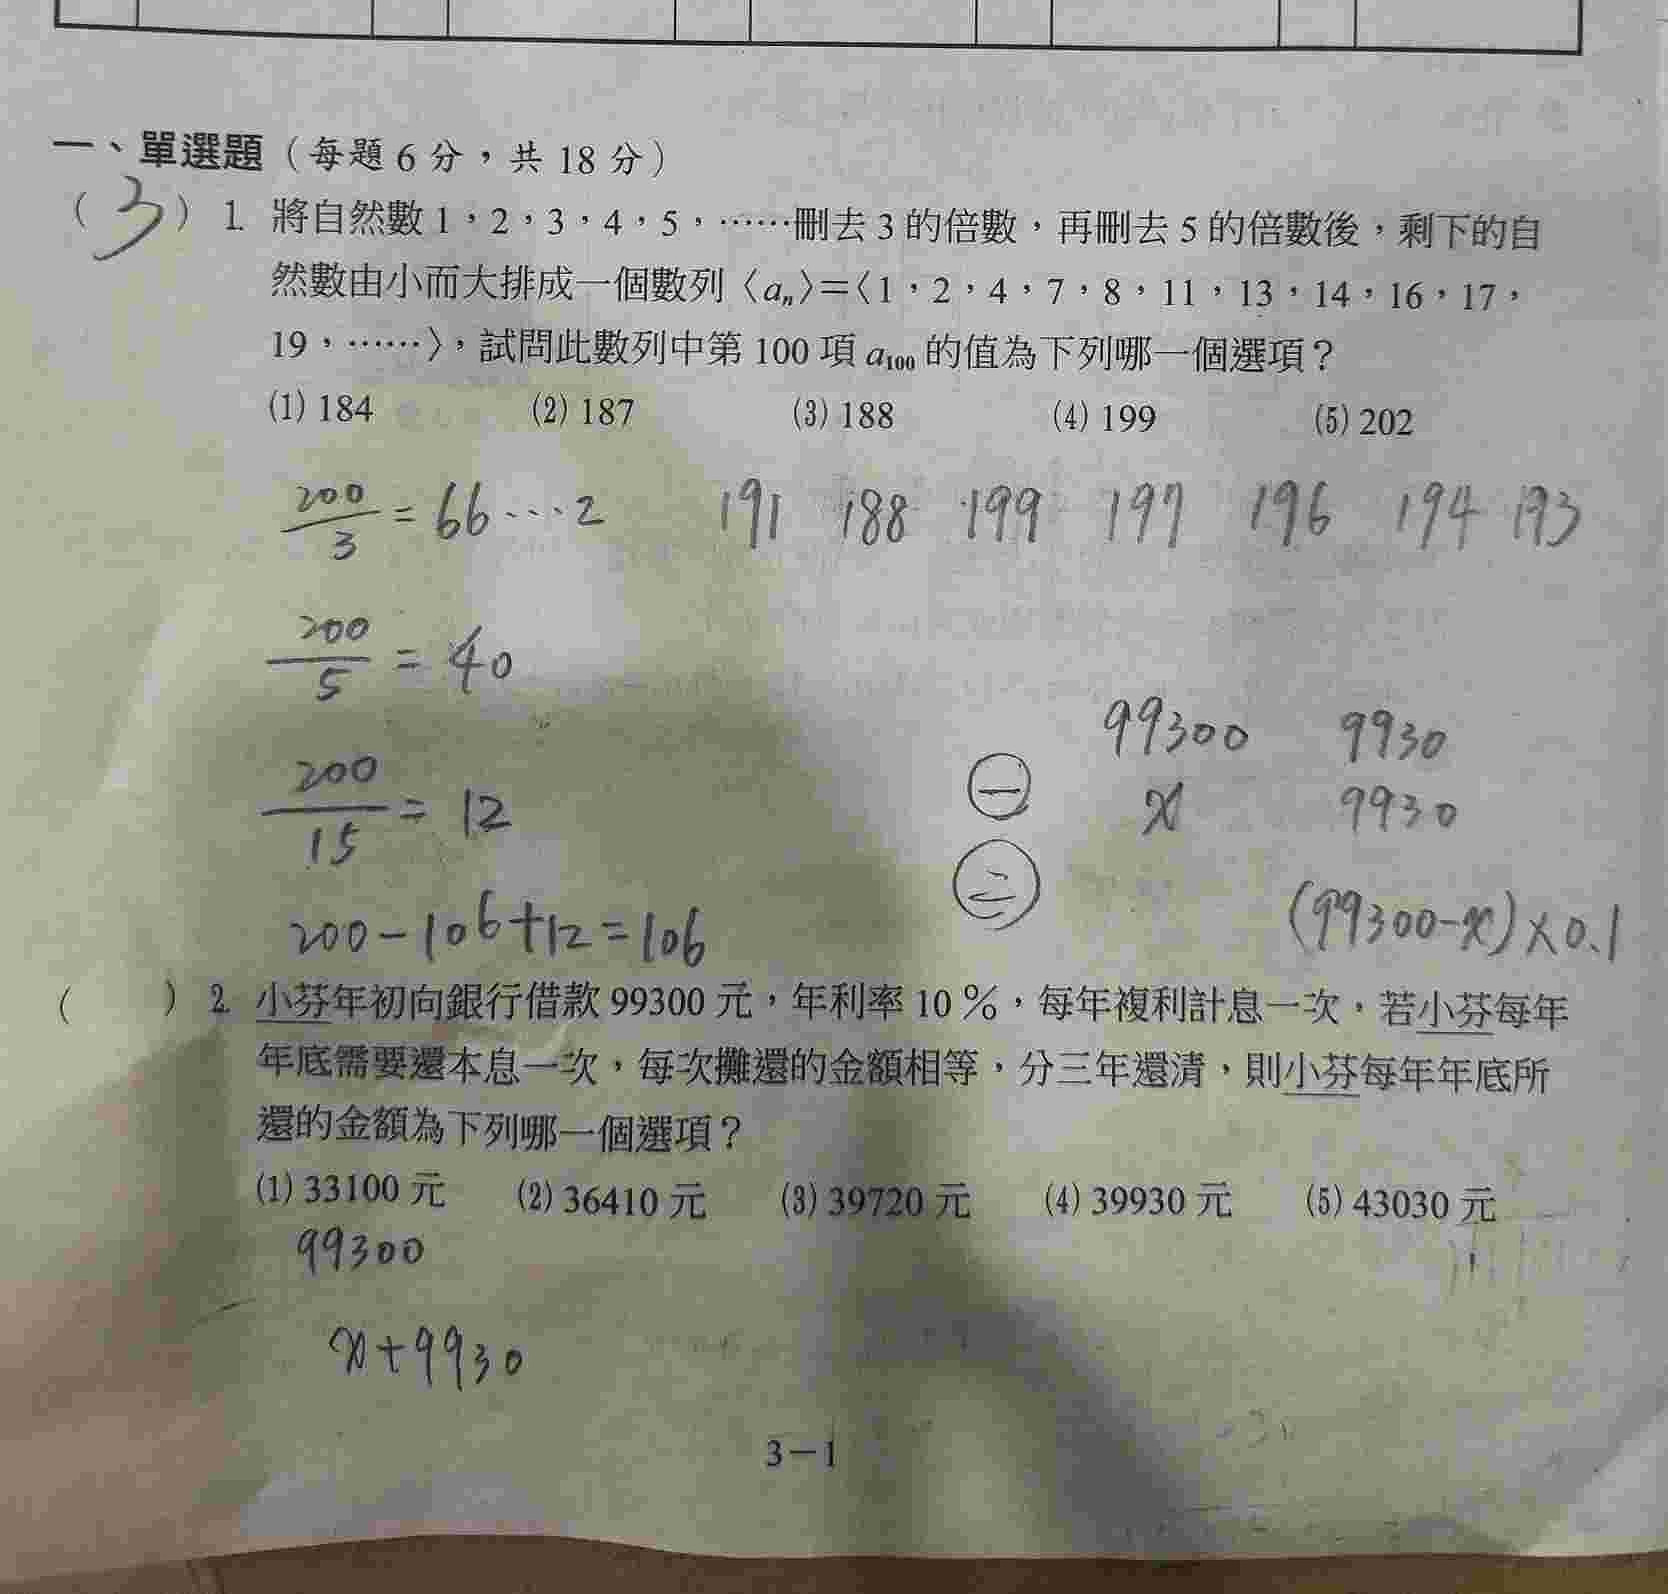 一、單選題（每題 6 分，共 18 分）
( 3 ) 1. 將自然數 1，2，3，4，5，……刪去 3 的倍數，再刪去 5 的倍數後，剩下的自
然數由小而大排成一個數列〈aₙ〉＝〈1，2，4，7，8，11，13，14，16，17，
19，……〉，試問此數列中第 100 項 a₁₀₀ 的值為下列哪一個選項？
(1) 184 (2) 187 (3) 188 (4) 199 (5) 202
200/3 = 66…2 191 188 199 197 196 194 193
200/5 = 40
99300 9930
200/15 = 12
㊀ x 9930
㊁
(99300-x)×0.1
200-106+12=106
( ) 2. 小芬年初向銀行借款 99300 元，年利率 10％，每年複利計息一次，若小芬每年
年底需要還本息一次，每次攤還的金額相等，分三年還清，則小芬每年年底所
還的金額為下列哪一個選項？
(1) 33100 元 (2) 36410 元 (3) 39720 元 (4) 39930 元 (5) 43030 元
99300
x+9930
3－1